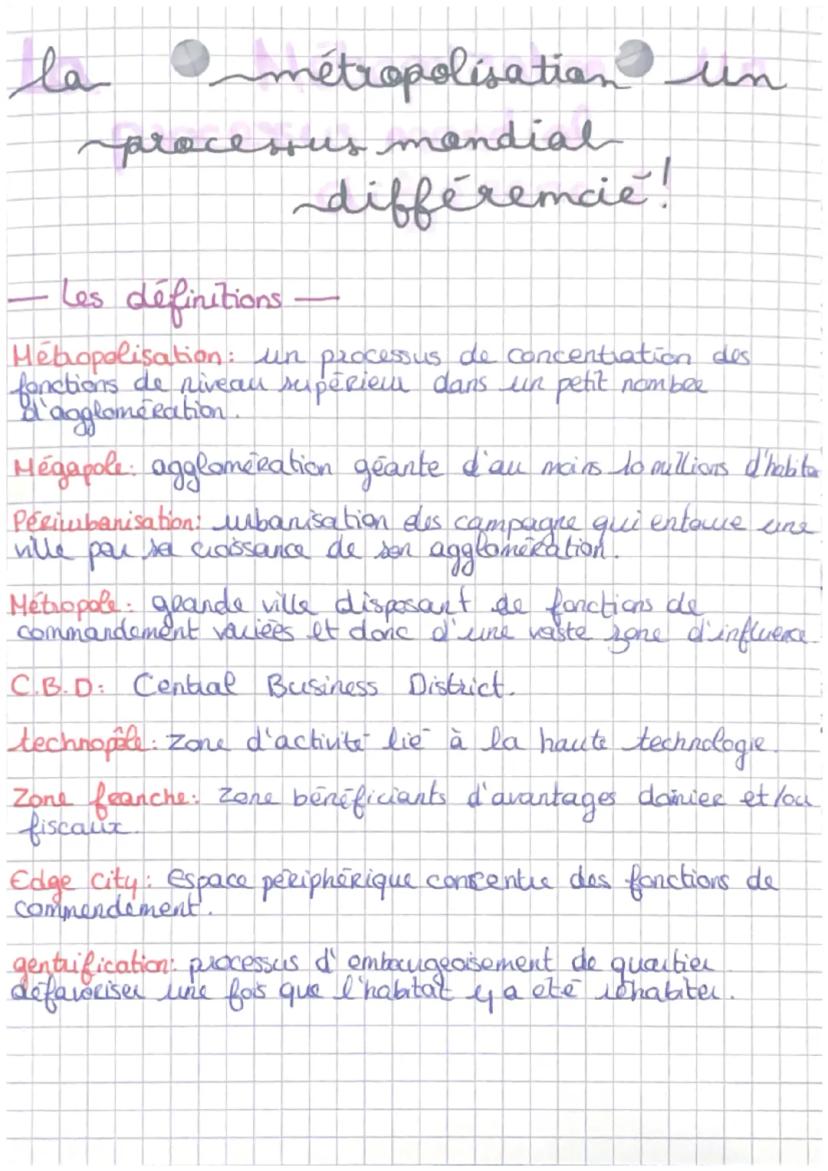 la métropolisation un
processus mondial
différencié!
— Les définitions —
Métropolisation: un processus de concentration des
fonctions de niveau supérieur dans un petit nombre
d'agglomération.
Mégapole: agglomération géante d'au moins 10 millions d'habita
Périurbanisation: urbanisation des campagne qui entoure une
ville par sa croissance de son agglomération.
Métropole: grande ville disposant de fonctions de
commandement variées et donc d'une vaste zone d'influence.
C.B.D: Central Business District.
technopôle: zone d'activité lié à la haute technologie.
Zone franche: zone bénéficiants d'avantages danier et/ou
fiscaux.
Edge city: espace périphérique concentre des fonctions de
commendement.
gentrification: processus d'embourgeoisement de quartier
défavoriser une fois que l'habitat y a été réhabiter.